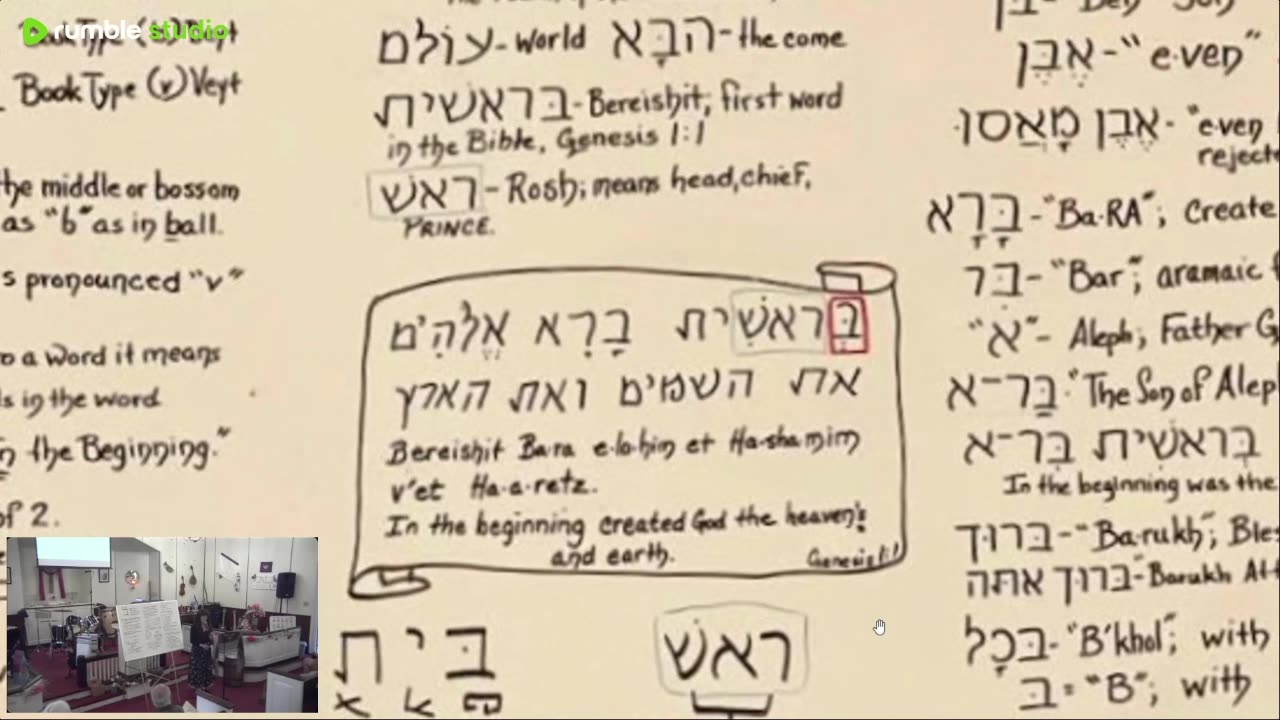 rumble studio
Book Type (v) Veyt
the middle or bossom
as "b" as in ball.
s pronounced "v"
o a word it means
s in the word
n the Beginning."
of 2.
עולם - world הבָא - the come
בראשית - Bereishit; first word
in the Bible, Genesis 1:1
ראש - Rosh; means head, chief,
PRINCE.
בְּראשִׁית בָרָא אֱלֹהִים
את השמים ואת הארץ
Bereishit Ba·ra e·lo·him et Ha·sha·mim
v'et Ha-a-retz.
In the beginning created God the heaven's
and earth. Genesis 1:1
בית
ראשׁ
אֶבֶן - "e·ven"
אֶבֶן מָאֲסוּ - "e·ven
rejecte
בָּרָא - "Ba·RA"; Create
בר - "Bar"; aramaic
"א" - Aleph; Father G
בַּר-א "The Son of Alep
בראשית בר-א
In the beginning was the
ברוך - "Ba·rukh"; Bles
ברוך אתה - Barukh At
בכָל - "B'khol"; with
ב = "B"; with